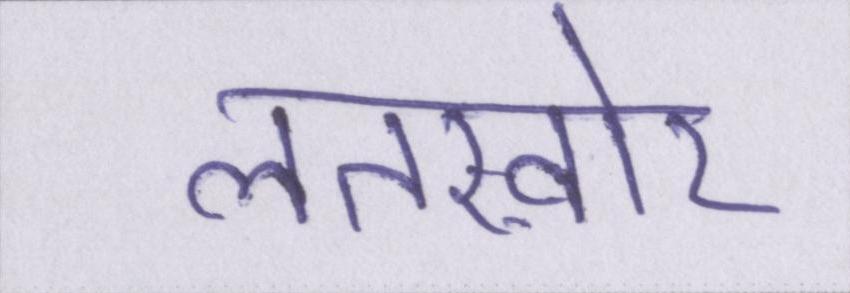 लतख़ोर